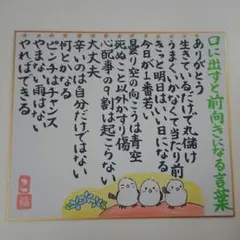 口に出すと前向きになる言葉
ありがとう
生きているだけで丸儲け
うまくいかなくて当たり前
きっと明日はいい日になる
今日が一番若い
曇り空の向こうは青空
死ぬこと以外かすり傷
心配事の9割は起こらない
大丈夫
辛いのは自分だけではない
何とかなる
ピンチはチャンス
やまない雨はない
やればできる